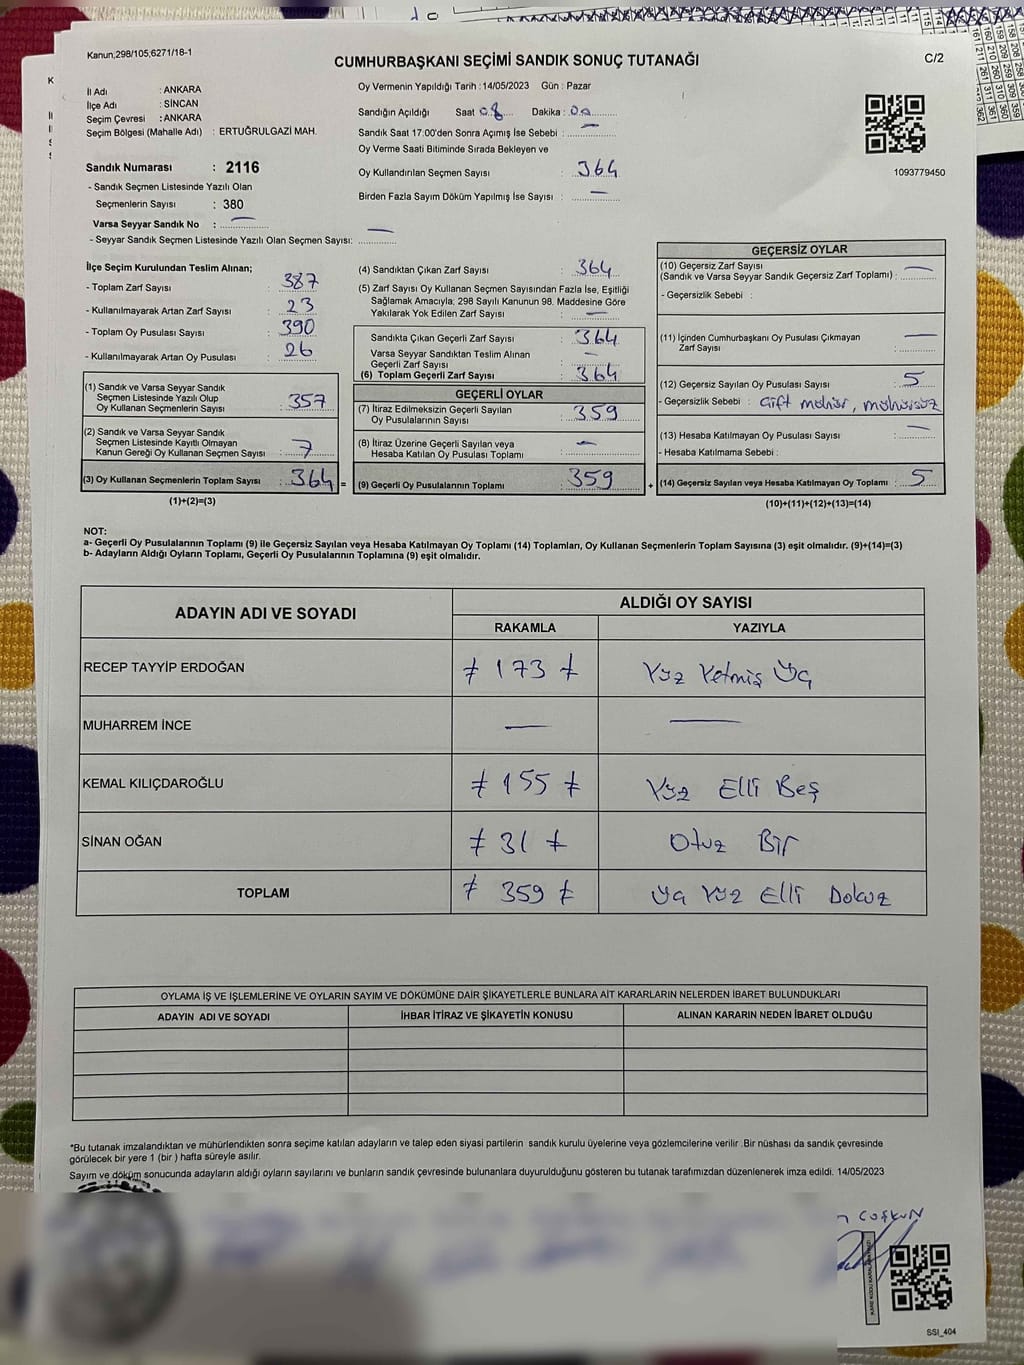 Kanun,298/105,6271/18-1
CUMHURBAŞKANI SEÇİMİ SANDIK SONUÇ TUTANAĞI
C/2
İl Adı : ANKARA
İlçe Adı : SİNCAN
Seçim Çevresi : ANKARA
Seçim Bölgesi (Mahalle Adı) : ERTUĞRULGAZİ MAH.
Sandık Numarası : 2116
- Sandık Seçmen Listesinde Yazılı Olan
Seçmenlerin Sayısı : 380
Varsa Seyyar Sandık No : —
- Seyyar Sandık Seçmen Listesinde Yazılı Olan Seçmen Sayısı: —
Oy Vermenin Yapıldığı Tarih :14/05/2023 Gün : Pazar
Sandığın Açıldığı Saat 08 Dakika : 00
Sandık Saat 17.00'den Sonra Açımış İse Sebebi : —
Oy Verme Saati Bitiminde Sırada Bekleyen ve
Oy Kullandırılan Seçmen Sayısı : 364
Birden Fazla Sayım Döküm Yapılmış İse Sayısı : —
1093779450
İlçe Seçim Kurulundan Teslim Alınan;
- Toplam Zarf Sayısı : 387
- Kullanılmayarak Artan Zarf Sayısı : 23
- Toplam Oy Pusulası Sayısı : 390
- Kullanılmayarak Artan Oy Pusulası : 26
(1) Sandık ve Varsa Seyyar Sandık
Seçmen Listesinde Yazılı Olup
Oy Kullanan Seçmenlerin Sayısı : 357
(2) Sandık ve Varsa Seyyar Sandık
Seçmen Listesinde Kayıtlı Olmayan
Kanun Gereği Oy Kullanan Seçmen Sayısı : 7
(3) Oy Kullanan Seçmenlerin Toplam Sayısı : 364 =
(1)+(2)=(3)
(4) Sandıktan Çıkan Zarf Sayısı : 364
(5) Zarf Sayısı Oy Kullanan Seçmen Sayısından Fazla İse, Eşitliği
Sağlamak Amacıyla; 298 Sayılı Kanunun 98. Maddesine Göre
Yakılarak Yok Edilen Zarf Sayısı : —
Sandıkta Çıkan Geçerli Zarf Sayısı : 364
Varsa Seyyar Sandıktan Teslim Alınan
Geçerli Zarf Sayısı : —
(6) Toplam Geçerli Zarf Sayısı : 364
GEÇERLİ OYLAR
(7) İtiraz Edilmeksizin Geçerli Sayılan
Oy Pusulalarının Sayısı : 359
(8) İtiraz Üzerine Geçerli Sayılan veya
Hesaba Katılan Oy Pusulası Toplamı : —
(9) Geçerli Oy Pusulalarının Toplamı : 359 +
GEÇERSİZ OYLAR
(10) Geçersiz Zarf Sayısı
(Sandık ve Varsa Seyyar Sandık Geçersiz Zarf Toplamı) : —
- Geçersizlik Sebebi :
(11) İçinden Cumhurbaşkanı Oy Pusulası Çıkmayan
Zarf Sayısı : —
(12) Geçersiz Sayılan Oy Pusulası Sayısı : 5
- Geçersizlik Sebebi : Çift mühür, mühürsüz
(13) Hesaba Katılmayan Oy Pusulası Sayısı : —
- Hesaba Katılmama Sebebi :
(14) Geçersiz Sayılan veya Hesaba Katılmayan Oy Toplamı : 5
(10)+(11)+(12)+(13)=(14)
NOT:
a- Geçerli Oy Pusulalarının Toplamı (9) ile Geçersiz Sayılan veya Hesaba Katılmayan Oy Toplamı (14) Toplamları, Oy Kullanan Seçmenlerin Toplam Sayısına (3) eşit olmalıdır. (9)+(14)=(3)
b- Adayların Aldığı Oyların Toplamı, Geçerli Oy Pusulalarının Toplamına (9) eşit olmalıdır.
ADAYIN ADI VE SOYADI
ALDIĞI OY SAYISI
RAKAMLA YAZIYLA
RECEP TAYYİP ERDOĞAN ≠ 173 ≠ Yüz Yetmiş Üç
MUHARREM İNCE — —
KEMAL KILIÇDAROĞLU ≠ 155 ≠ Yüz Elli Beş
SİNAN OĞAN ≠ 31 ≠ Otuz Bir
TOPLAM ≠ 359 ≠ Üç Yüz Elli Dokuz
OYLAMA İŞ VE İŞLEMLERİNE VE OYLARIN SAYIM VE DÖKÜMÜNE DAİR ŞİKAYETLERLE BUNLARA AİT KARARLARIN NELERDEN İBARET BULUNDUKLARI
ADAYIN ADI VE SOYADI İHBAR İTİRAZ VE ŞİKAYETİN KONUSU ALINAN KARARIN NEDEN İBARET OLDUĞU
*Bu tutanak imzalandıktan ve mühürlendikten sonra seçime katılan adayların ve talep eden siyasi partilerin sandık kurulu üyelerine veya gözlemcilerine verilir .Bir nüshası da sandık çevresinde
görülecek bir yere 1 (bir ) hafta süreyle asılır.
Sayım ve döküm sonucunda adayların aldığı oyların sayılarını ve bunların sandık çevresinde bulunanlara duyurulduğunu gösteren bu tutanak tarafımızdan düzenlenerek imza edildi. 14/05/2023
COŞKUN
SSI_404